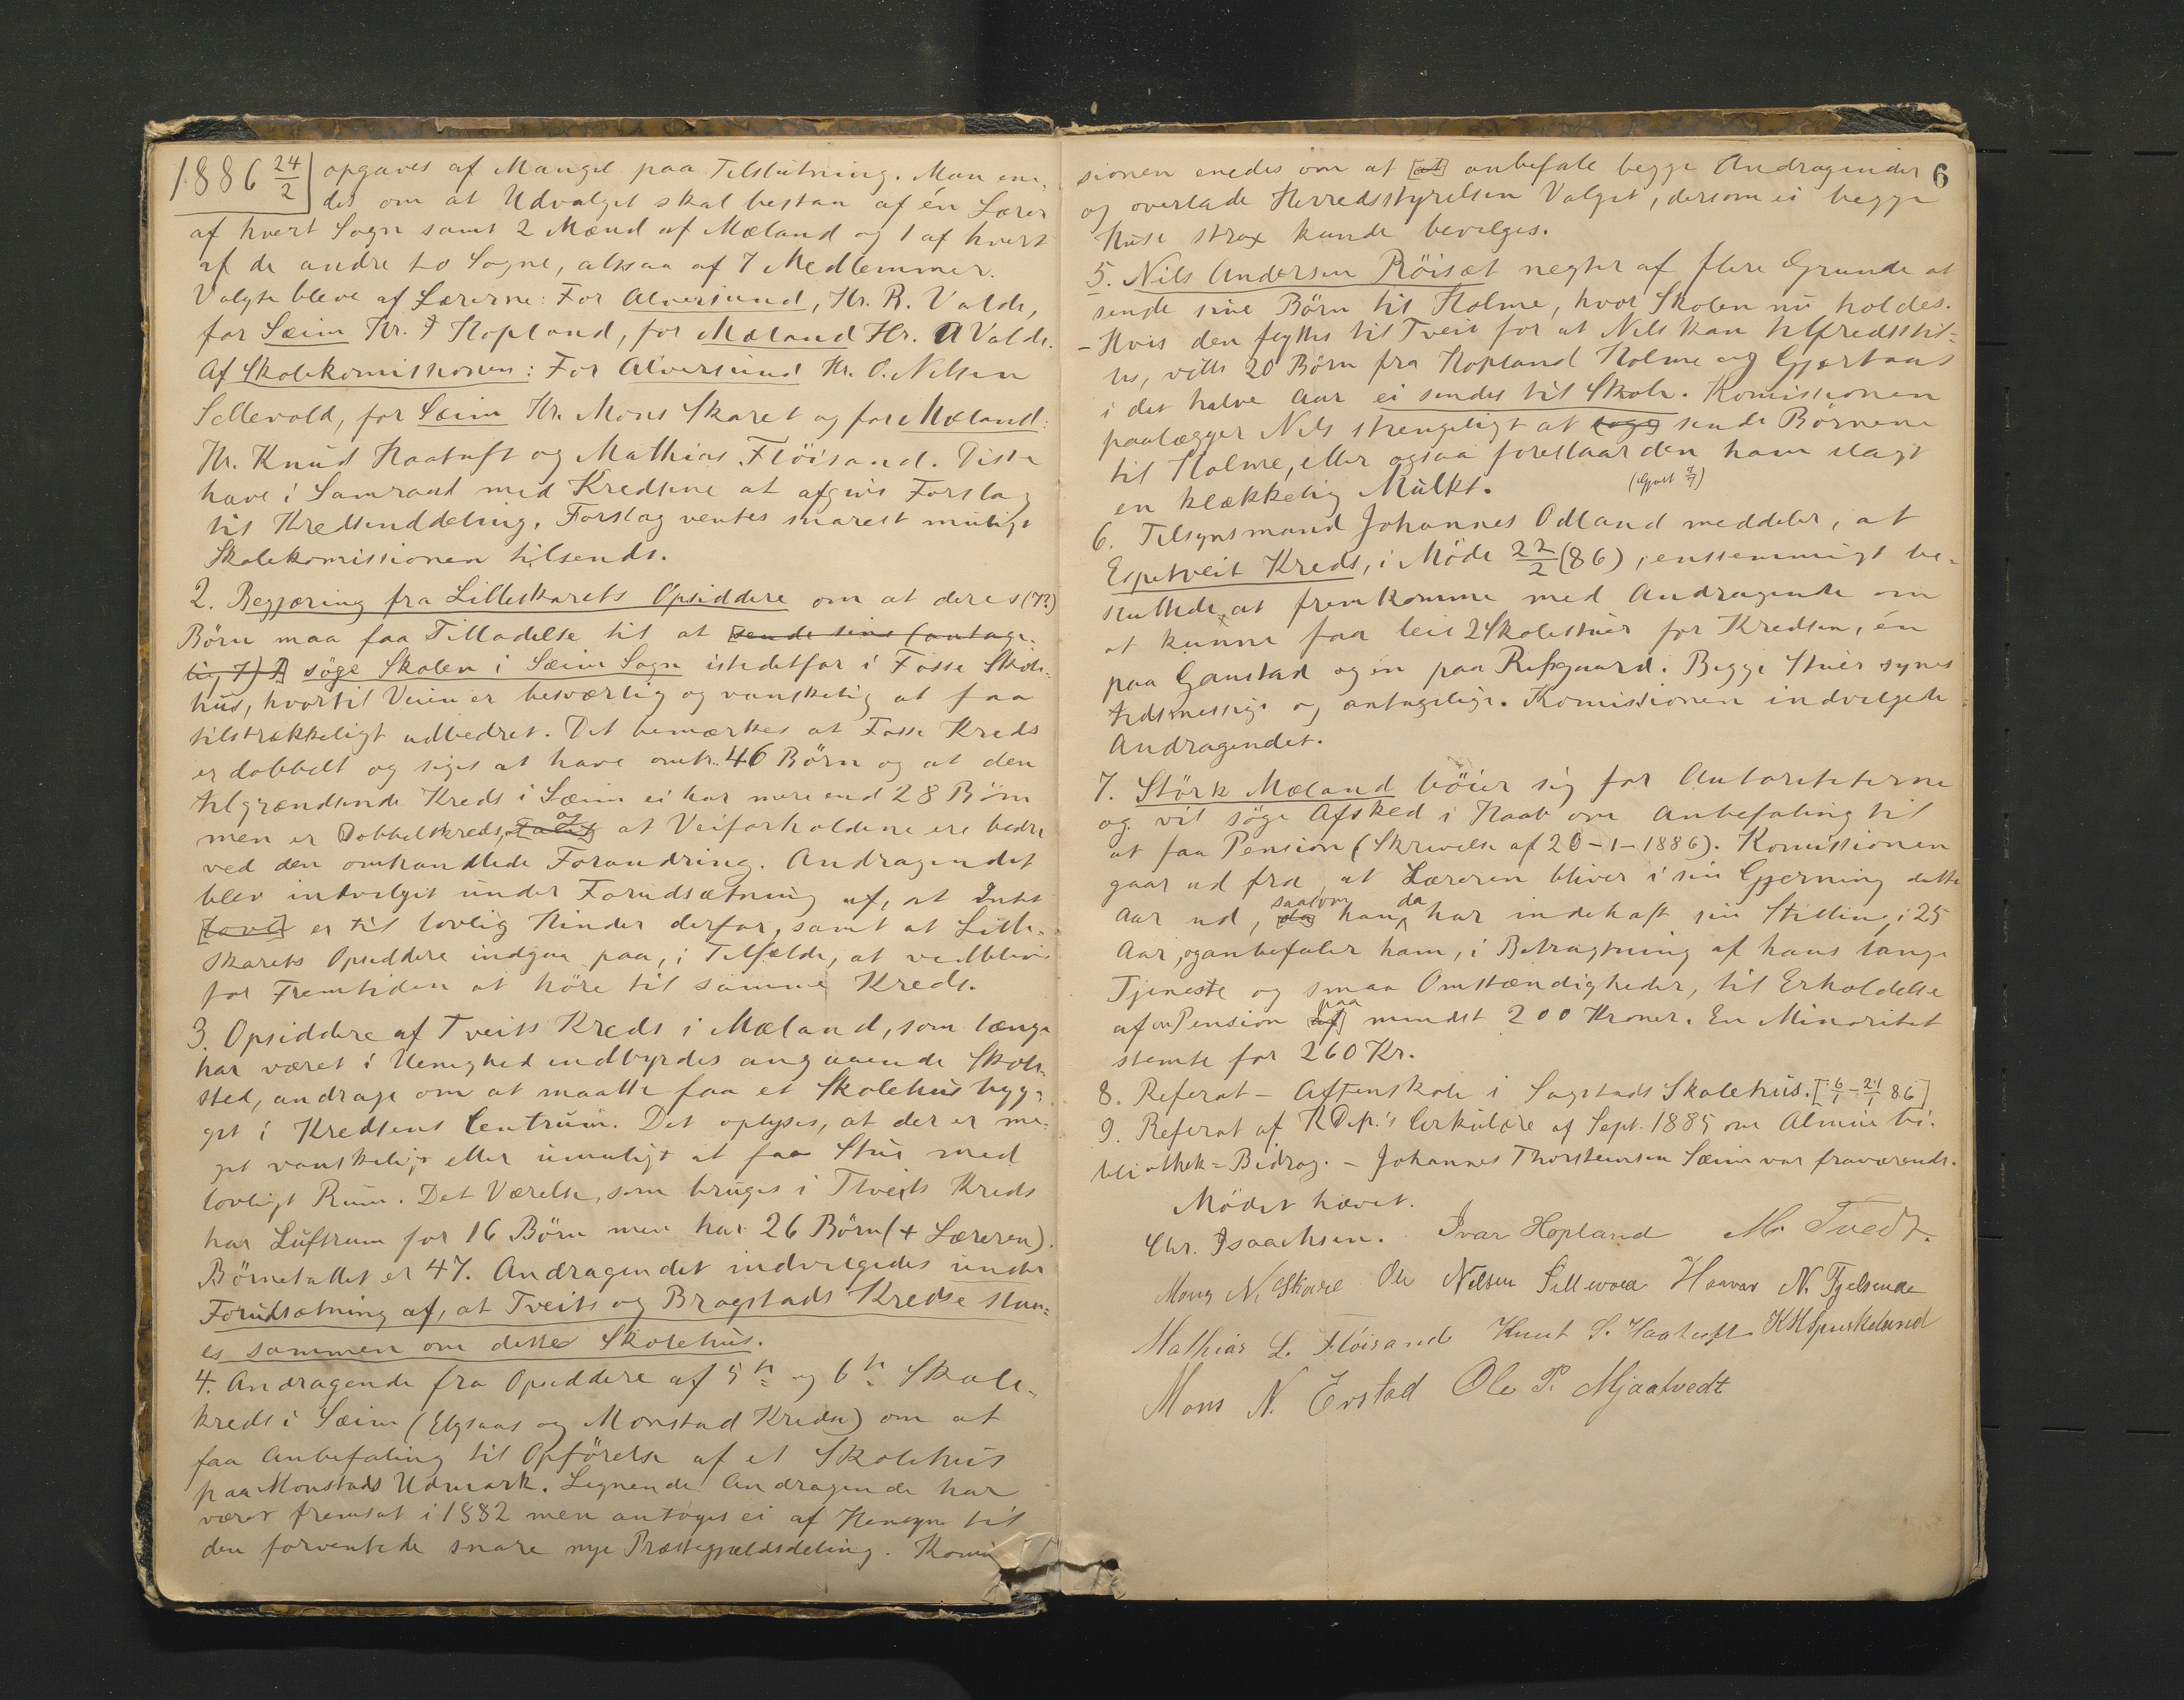 1886 24/2 opgaves af Mangel paa Tilslutning. Man ene-
des om at Udvalget skal bestaa af én Lærer
af hvert Sogn samt 2 Mænd af Mæland og 1 af hvert
af de andre to Sogne, altsaa af 7 Medlemmer.
Valgte bleve af Lærerne: For Alversund, Hr. R. Valde,
for Sæim Hr. I Hopland, for Mæland Hr. A Valde.
Af Skolekomissionen: For Alversund Hr. O. Nilsen
Sellevold, for Sæim Hr. Mons Skaret og for Mæland:
Hr. Knud Haatuft og Mathias Flöisand. Disse
have i Samraad med Kredsene at afgive Forslag
til Kredsinddeling. Forslag ventes snarest muligt
Skolekomissionen tilsendt.
2. Begjæring fra Lilleskarets Opsiddere om at deres (7?)
Börn maa faa Tilladelse til at [sende sine (antage-
lig 7) B] söge Skolen i Sæim Sogn istedetfor i Fosse Skole-
hus, hvortil Veien er besværlig og vanskelig at faa
tilstrækkeligt udbedret. Det bemærkes at Fosse Kreds
er dobbelt og siges at have omtr. 46 Börn og at den
tilgrændsende Kreds i Sæim ei har mere end 28 Börn
men er Dobbeltkreds, og at Veiforholdene ere bedre
ved den omhandlede Forandring. Andragendet
blev indvilget under Forudsætning af, at Intet
[Lovl] er til lovlig Hinder derfor, samt at Lille-
skarets Opsiddere indgaa paa, i Tilfælde, at vedblive
for Fremtiden at höre til samme Kreds.
3. Opsiddere af Tveits Kreds i Mæland, som længe
har været i Uenighed indbyrdes angaaende Skole-
sted, andrage om at maatte faa et Skolehus byg-
get i Kredsens Centrum. Det oplyses, at der er me-
get vanskeligt eller umuligt at faa Stue med
lovligt Rum. Det Værelse, som bruges i Tveits Kreds
har Luftrum for 16 Börn men har 26 Börn (+ Læreren).
Börnetallet er 47. Andragendet indvilgedes under
Forudsætning af, at Tveits og Bragstads Kredse staa-
es sammen om dette Skolehus.
4. Andragende fra Opsiddere af 5te og 6te Skole-
kreds i Sæim (Elgsaas og Monstad Kredse) om at
faa Anbefaling til Opförelse af et Skolehus
paa Monstads Udmark. Lignende Andragende har
været fremsat i 1882 men antoges ei af Hensyn til
den forventede snare nye Præstegjældsdeling. Komis
6
sionen enedes om at [at] anbefale begge Andragender
og overlade Herredsstyrelsen Valget, dersom ei begge
Huse strax kunde bevilges.
5. Nils Andersen Röisæt negter af flere Grunde at
sende sine Börn til Holme, hvor Skolen nu holdes.
- Hvis den flyttes til Tveit for at Nils kan tilfredsstil-
les, ville 20 Börn fra Hopland Holme og Gjærtaas
i det halve Aar ei sendes til Skole. Komissionen
paalægger Nils strengeligt at sende Börnene
til Holme, eller ogsaa foreslaar den ham ilagt
en klækkelig Mulkt.
6. Tilsynsmand Johannes Odland meddeler, at
Espetveit Kreds, i Möde 22/2 (86), enstemmigt be-
sluttede at fremkomme med Andragende om
at kunne faa leie 2 Skolestuer for Kredsen, én
paa Ganstad og en paa Refsgaard. Begge Stuer synes
tidsmessige og antagelige. Komissionen indvilgede
Andragendet.
7. Störk Mæland böier sig for Autoriteterne
og vil söge Afsked i Haab om Anbefaling til
at faa Pension (Skrivelse af 20-1-1886). Komissionen
gaar ud fra, at Læreren bliver i sin Gjerning dette
Aar ud, saasom [da] han da har indehaft sin Stilling i 25
Aar, og anbefaler ham, i Betragtning af hans lange
Tjeneste og smaa Omstændigheder, til Erholdelse
af en Pension paa [af] mindst 200 Kroner. En Minoritet
stemte for 260 Kr.
8. Referat - Aftenskole i Sagstads Skolehus. [6/1 - 21/1 86]
9. Referat af KDep.'s Cirkulære af Sept. 1885 om Almue bi-
bliothek=Bidrag. - Johannes Thorsteinsen Sæim var fraværende.
Mödet hævet.
Chr. Isaachsen. Ivar Hopland M. Tvedt.
Mons N. Skaret Ole Nilsen Sellevold Haavar N. Fjelsende
Mathias L. Flöisand Knut S. Haatuft KKSpurkeland
Mons N. Erstad Ole P. Mjaatvedt